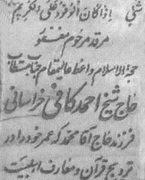 اذا کان الوفود علی الکریم
مرقد مرحوم مغفور
حجة الاسلام واعظ عالیمقام جناب مستطاب
حاج شیخ احمد کافی خراسانی
فرزند حاج آقا محمد که عمر خود را در
ترویج قرآن و معارف اهلبیت